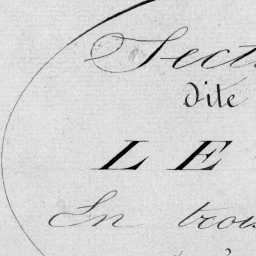 Sect
dite
LE
En trois